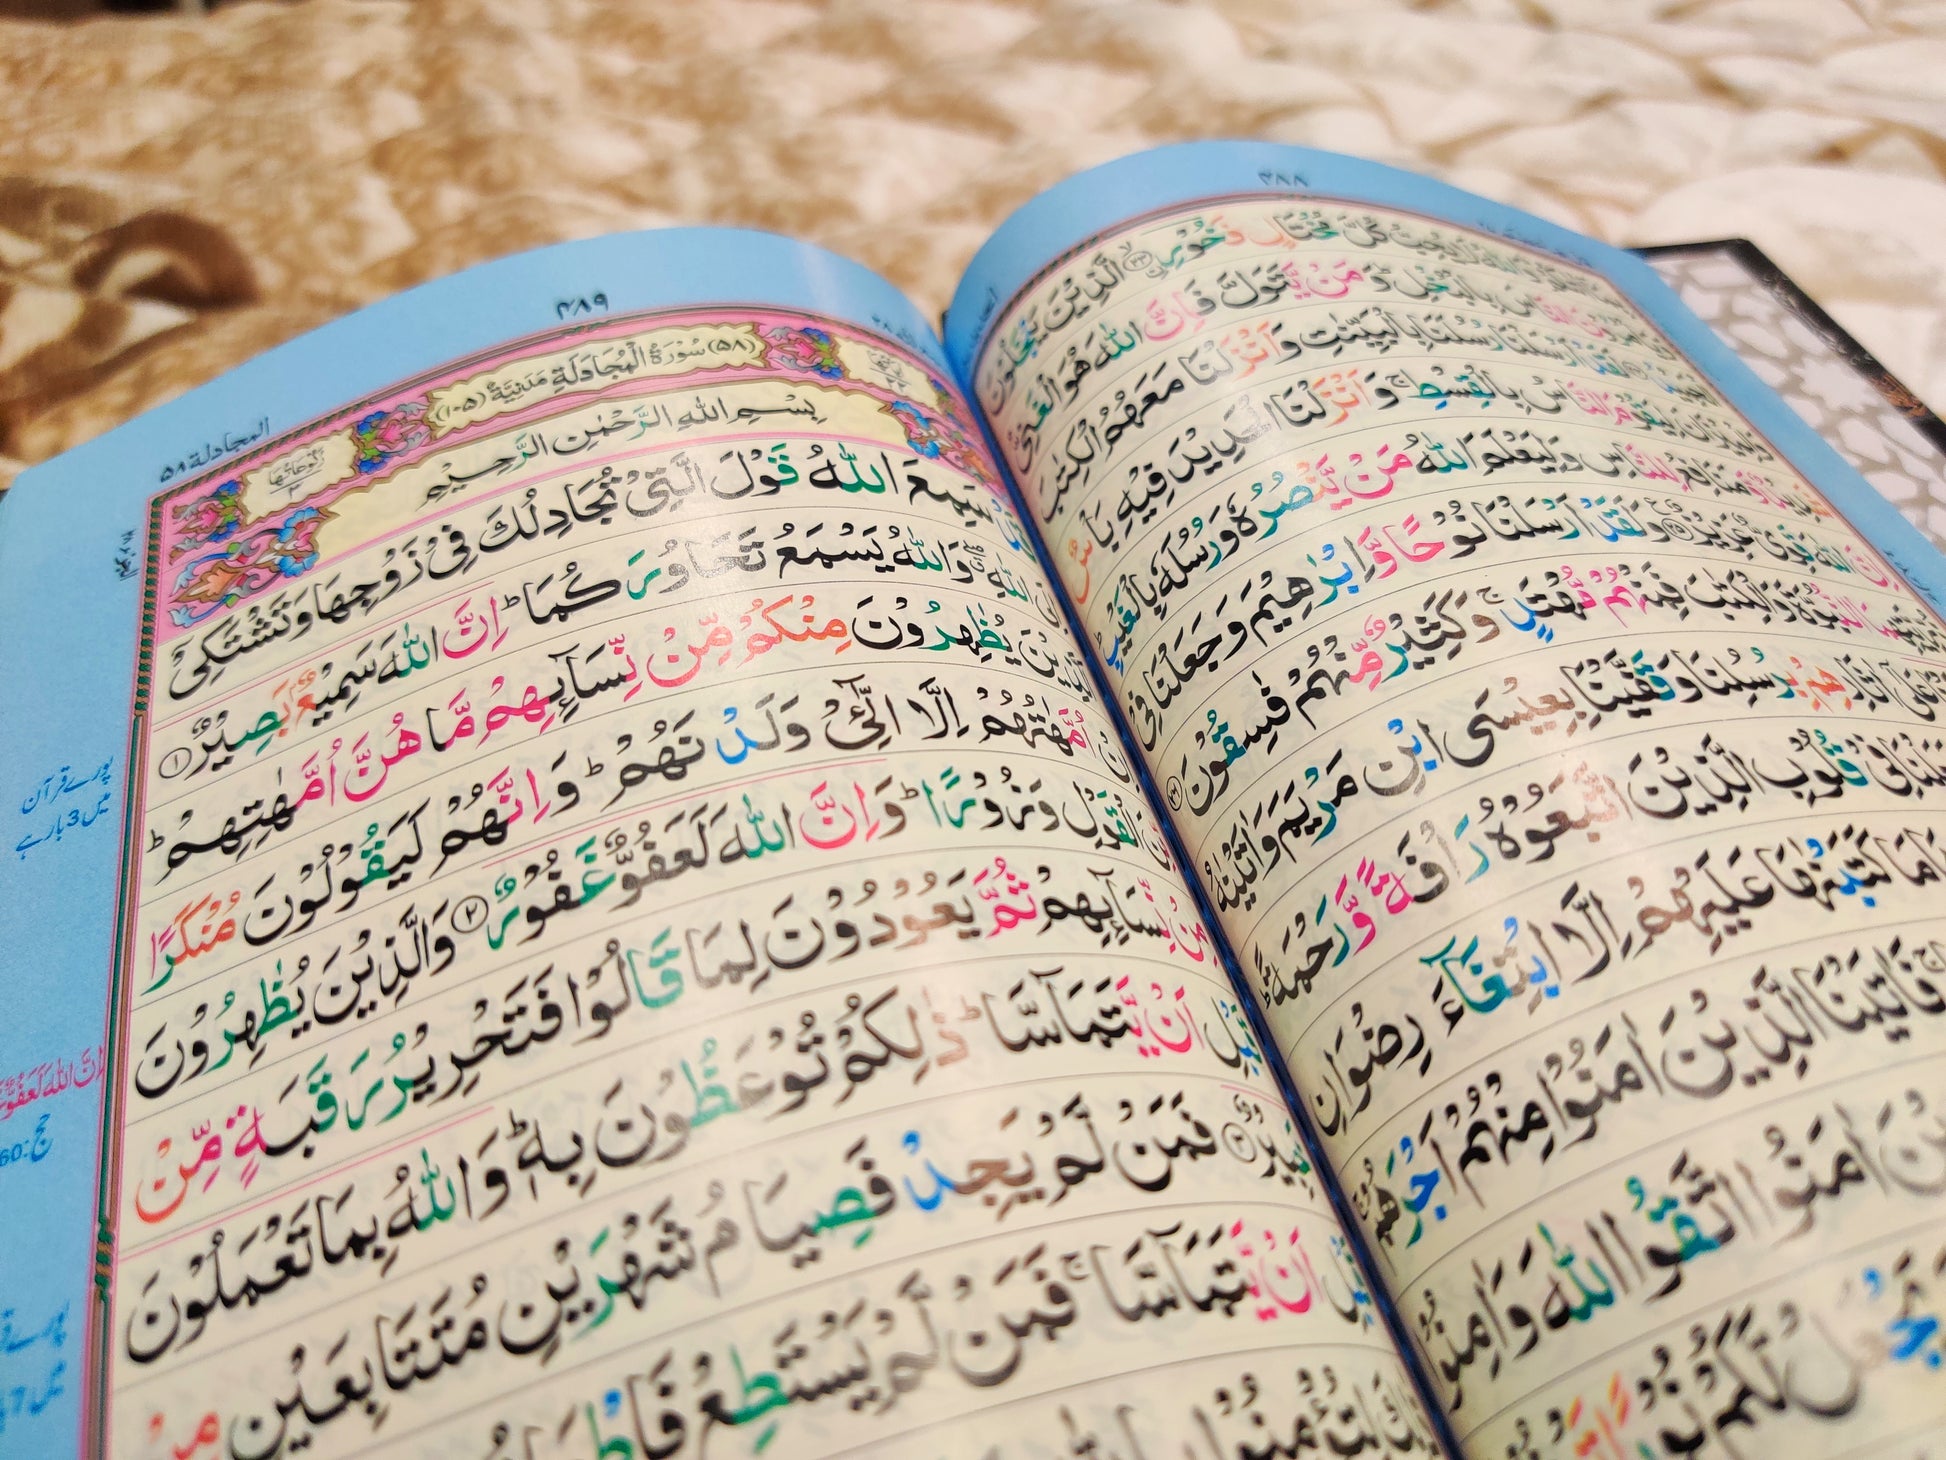 ۴۸۸
كُلَّ مُخْتَالٍ فَخُوْرِ ۙ﴿۲۳﴾ الَّذِيْنَ يَبْخَلُوْنَ
بِالْبُخْلِ ؕ وَمَنْ يَّتَوَلَّ فَاِنَّ اللّٰهَ هُوَ الْغَنِيُّ
لَقَدْ اَرْسَلْنَا رُسُلَنَا بِالْبَيِّنٰتِ وَاَنْزَلْنَا مَعَهُمُ الْكِتٰبَ
لِيَقُوْمَ النَّاسُ بِالْقِسْطِ ۚ وَاَنْزَلْنَا الْحَدِيْدَ فِيْهِ بَاْسٌ
وَّمَنَافِعُ لِلنَّاسِ وَلِيَعْلَمَ اللّٰهُ مَنْ يَّنْصُرُهٗ وَرُسُلَهٗ بِالْغَيْبِ ؕ
اِنَّ اللّٰهَ قَوِيٌّ عَزِيْزٌ ﴿۲۵﴾ وَلَقَدْ اَرْسَلْنَا نُوْحًا وَّاِبْرٰهِيْمَ وَجَعَلْنَا فِيْ
النُّبُوَّةَ وَالْكِتٰبَ فَمِنْهُمْ مُّهْتَدٍ ۚ وَكَثِيْرٌ مِّنْهُمْ فٰسِقُوْنَ ﴿۲۶﴾
عَلٰٓى اٰثَارِهِمْ بِرُسُلِنَا وَقَفَّيْنَا بِعِيْسَى ابْنِ مَرْيَمَ وَاٰتَيْنٰهُ
فِيْ قُلُوْبِ الَّذِيْنَ اتَّبَعُوْهُ رَاْفَةً وَّرَحْمَةً ؕ
مَا كَتَبْنٰهَا عَلَيْهِمْ اِلَّا ابْتِغَآءَ رِضْوَانِ
فَاٰتَيْنَا الَّذِيْنَ اٰمَنُوْا مِنْهُمْ اَجْرَهُمْ ۚ
اٰمَنُوا اتَّقُوا اللّٰهَ وَاٰمِنُوْا
لَّكُمْ نُوْرًا
۴۸۹
المجادلة ۵۸
(۵۸) سُوْرَةُ الْمُجَادَلَةِ مَدَنِيَّةٌ (۱۰۵)
رُكُوْعَاتُهَا ۳
بِسْمِ اللّٰهِ الرَّحْمٰنِ الرَّحِيْمِ
قَدْ سَمِعَ اللّٰهُ قَوْلَ الَّتِيْ تُجَادِلُكَ فِيْ زَوْجِهَا وَتَشْتَكِيْٓ
اِلَى اللّٰهِ ۖ وَاللّٰهُ يَسْمَعُ تَحَاوُرَكُمَا ؕ اِنَّ اللّٰهَ سَمِيْعٌۢ بَصِيْرٌ ﴿۱﴾
اَلَّذِيْنَ يُظٰهِرُوْنَ مِنْكُمْ مِّنْ نِّسَآئِهِمْ مَّا هُنَّ اُمَّهٰتِهِمْ ؕ
اِنْ اُمَّهٰتُهُمْ اِلَّا الّٰٓـِٔيْ وَلَدْنَهُمْ ؕ وَاِنَّهُمْ لَيَقُوْلُوْنَ مُنْكَرًا
مِّنَ الْقَوْلِ وَزُوْرًا ؕ وَاِنَّ اللّٰهَ لَعَفُوٌّ غَفُوْرٌ ﴿۲﴾ وَالَّذِيْنَ يُظٰهِرُوْنَ
مِنْ نِّسَآئِهِمْ ثُمَّ يَعُوْدُوْنَ لِمَا قَالُوْا فَتَحْرِيْرُ رَقَبَةٍ مِّنْ
قَبْلِ اَنْ يَّتَمَآسَّا ؕ ذٰلِكُمْ تُوْعَظُوْنَ بِهٖ ؕ وَاللّٰهُ بِمَا تَعْمَلُوْنَ
خَبِيْرٌ ﴿۳﴾ فَمَنْ لَّمْ يَجِدْ فَصِيَامُ شَهْرَيْنِ مُتَتَابِعَيْنِ مِنْ
قَبْلِ اَنْ يَّتَمَآسَّا ۚ فَمَنْ لَّمْ يَسْتَطِعْ فَاِطْعَامُ
لِتُؤْمِنُوْا
پورے قرآن
میں 3 بار ہے
اِنَّ اللّٰهَ لَعَفُوٌّ
حج:60